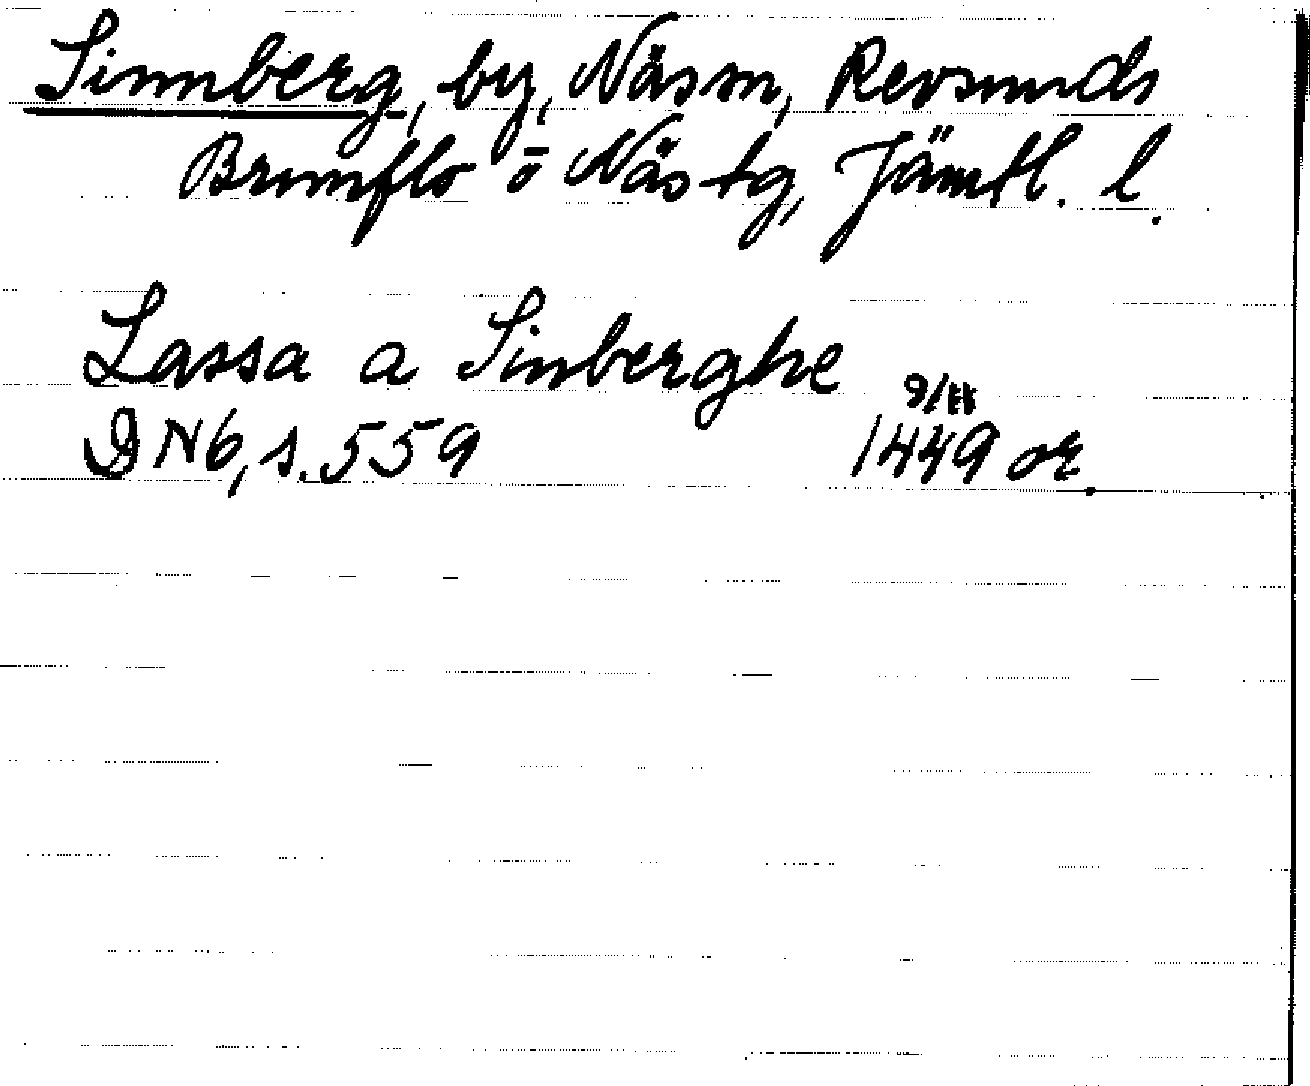 Sinnberg, by, Näs sn, Revsunds
Brunflo o Näs tg, Jämtl. l.
Lassa a Sinberghe
9/11
DN6, s. 559 1449 or.